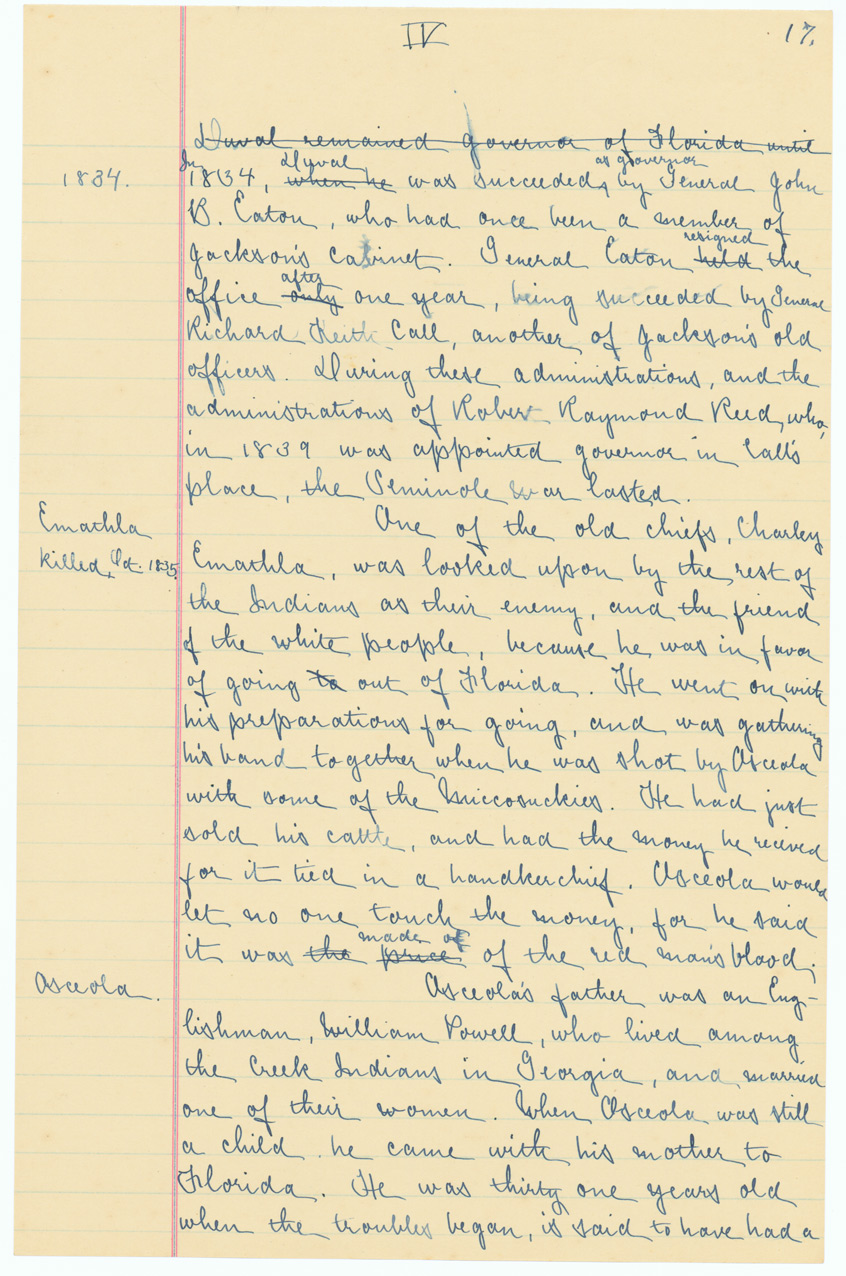 IV
17.
Duval remained governor of Florida until
In Duval as governor
1834. 1834, when he was succeeded, by General John
B. Eaton, who had once been a member of
resigned
Jackson's cabinet. General Eaton held the
after
office only one year, being succeeded by General
Richard Keith Call, another of Jackson's old
officers. During these administrations, and the
administrations of Robert Raymond Reed, who,
in 1839 was appointed governor in Call's
place, the Seminole war lasted.
Emathla One of the old chiefs, Charley
killed, Oct. 1835. Emathla, was looked upon by the rest of
the Indians as their enemy, and the friend
of the white people, because he was in favor
of going to out of Florida. He went on with
his preparations for going, and was gathering
his band together when he was shot by Osceola
with some of the Miccosuckies. He had just
sold his cattle, and had the money he recieved
for it tied in a handkerchief. Osceola would
let no one touch the money, for he said
made of
it was the price of the red man's blood;
Osceola. Osceola's father was an Eng-
lishman, William Powell, who lived among
the Creek Indians in Georgia, and married
one of their women. When Osceola was still
a child he came with his mother to
Florida. He was thirty one years old
when the troubles began, is said to have had a